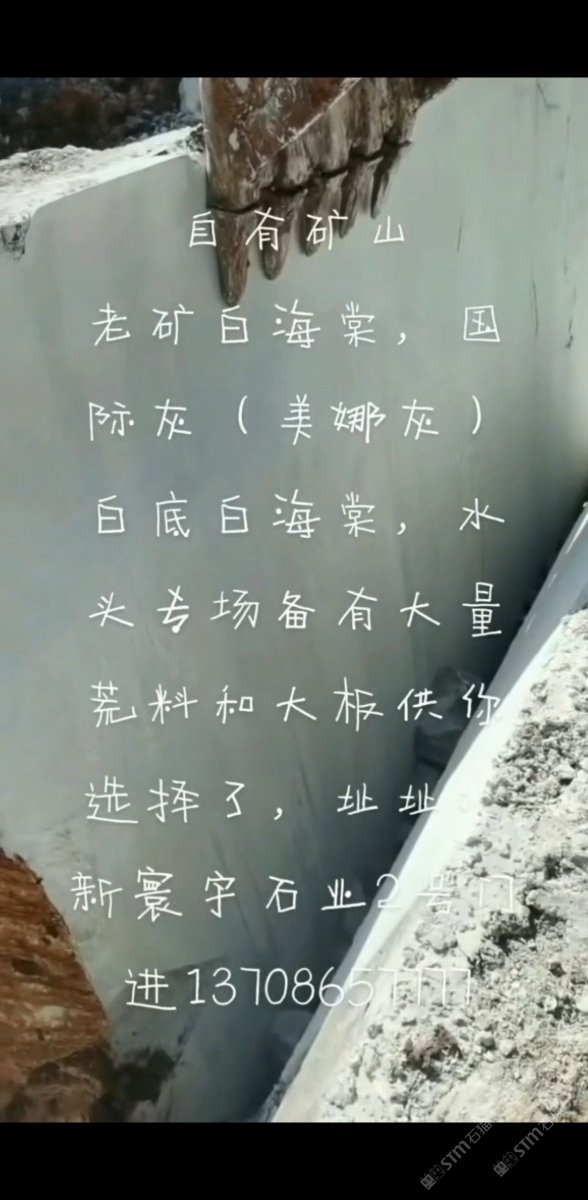 自有矿山
老矿白海棠，国
际灰（美娜灰）
白底白海棠，水
头专场备有大量
荒料和大板供你
选择了，址址：
新寰宇石业2号门
进13708657777
STM石猫
STM石